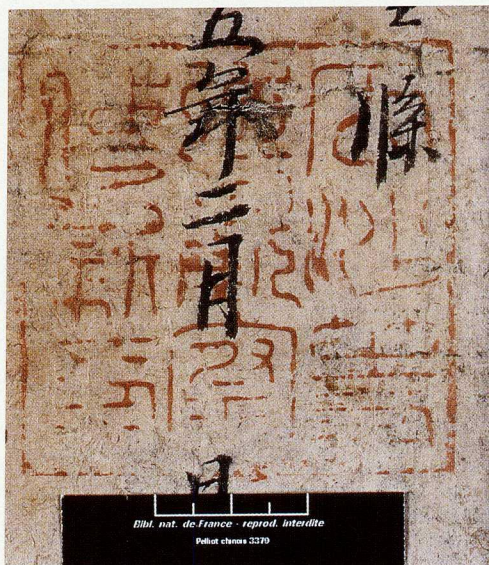 牒
五年二月 日
瓜沙等
州觀察
使新印
Bibl. nat. de France - reprod. interdite
Pelliot chinois 3379